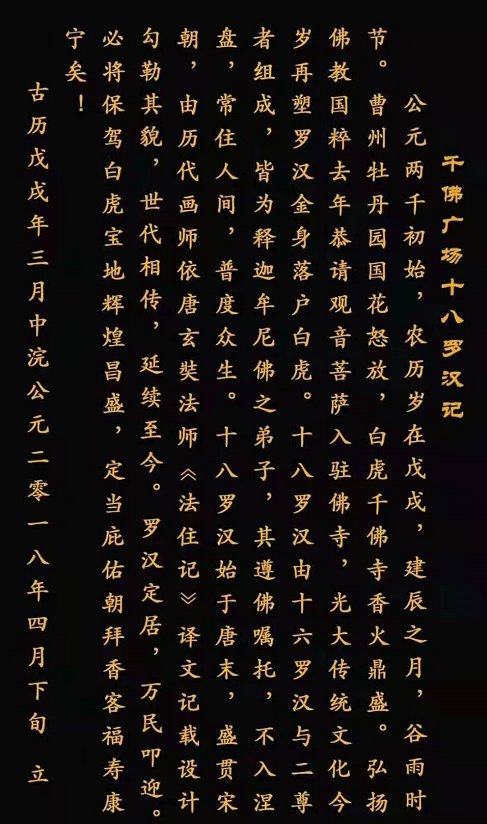 千佛广场十八罗汉记
公元两千初始，农历岁在戊戌，建辰之月，谷雨时
节。曹州牡丹园国花怒放，白虎千佛寺香火鼎盛。弘扬
佛教国粹去年恭请观音菩萨入驻佛寺，光大传统文化今
岁再塑罗汉金身落户白虎。十八罗汉由十六罗汉与二尊
者组成，皆为释迦牟尼佛之弟子，其遵佛嘱托，不入涅
盘，常住人间，普度众生。十八罗汉始于唐末，盛贯宋
朝，由历代画师依唐玄奘法师《法住记》译文记载设计
勾勒其貌，世代相传，延续至今。罗汉定居，万民叩迎。
必将保驾白虎宝地辉煌昌盛，定当庇佑朝拜香客福寿康
宁矣！
古历戊戌年三月中浣公元二零一八年四月下旬 立